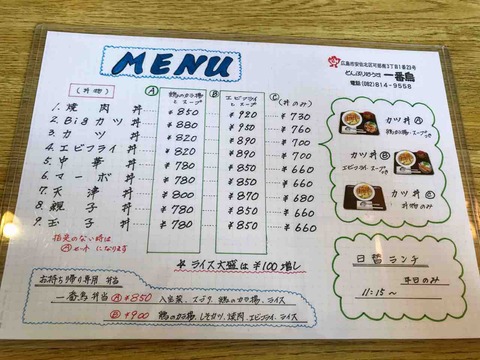 MENU
広島市安佐北区可部南3丁目1番23号
どんぶりはうす 一番鳥
電話 (082) 814-9558
(丼物)
A 鶏のカラ揚とスープ
B エビフライとスープ
C (丼のみ)
1. 焼肉丼 ¥850 ¥920 ¥730
2. Bigカツ丼 ¥880 ¥950 ¥760
3. カツ丼 ¥820 ¥890 ¥700
4. エビフライ丼 ¥820 ¥890 ¥700
5. 中華丼 ¥780 ¥850 ¥660
6. マーボ丼 ¥780 ¥850 ¥660
7. 天津丼 ¥800 ¥870 ¥680
8. 親子丼 ¥780 ¥850 ¥660
9. 玉子丼 ¥780 ¥850 ¥660
指定のない時は
Aセットになります
カツ丼 A
鶏カラ揚・スープ付
カツ丼 B
エビフライ・スープ付
カツ丼 C
丼物のみ
* ライス大盛は¥100増し
お持ち帰り専用 弁当
一番鳥弁当 A ¥850 八宝菜、スブタ、鶏のカラ揚、ライス
B ¥900 鶏のカラ揚、しそカツ、焼肉、エビフライ、ライス
日替ランチ
平日のみ
11:15~